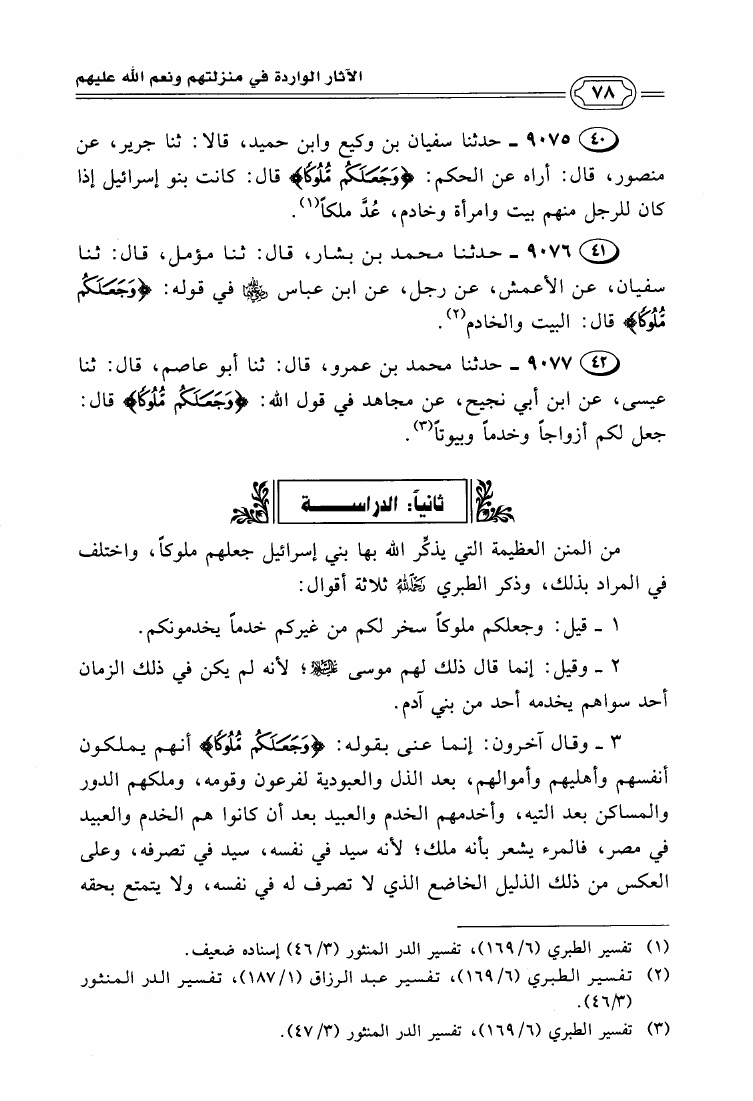 الآثار الواردة في منزلتهم ونعم الله عليهم
٧٨
٤٠ ٩٠٧٥ ـ حدثنا سفيان بن وكيع وابن حميد، قالا: ثنا جرير، عن
منصور، قال: أراه عن الحكم: ﴿وَجَعَلَكُم مُّلُوكًا﴾ قال: كانت بنو إسرائيل إذا
كان للرجل منهم بيت وامرأة وخادم، عُدَّ ملكاً(١).
٤١ ٩٠٧٦ ـ حدثنا محمد بن بشار، قال: ثنا مؤمل، قال: ثنا
سفيان، عن الأعمش، عن رجل، عن ابن عباس ﷺ في قوله: ﴿وَجَعَلَكُم
مُّلُوكًا﴾ قال: البيت والخادم(٢).
٤٢ ٩٠٧٧ ـ حدثنا محمد بن عمرو، قال: ثنا أبو عاصم، قال: ثنا
عيسى، عن ابن أبي نجيح، عن مجاهد في قول الله: ﴿وَجَعَلَكُم مُّلُوكًا﴾ قال:
جعل لكم أزواجاً وخدماً وبيوتاً(٣).
ثانياً: الدراســـة
من المنن العظيمة التي يذكِّر الله بها بني إسرائيل جعلهم ملوكاً، واختلف
في المراد بذلك، وذكر الطبري رَحِمَهُ اللهُ ثلاثة أقوال:
١ ـ قيل: وجعلكم ملوكاً سخر لكم من غيركم خدماً يخدمونكم.
٢ ـ وقيل: إنما قال ذلك لهم موسى عَلَيْهِ السَّلَامُ؛ لأنه لم يكن في ذلك الزمان
أحد سواهم يخدمه أحد من بني آدم.
٣ ـ وقال آخرون: إنما عنى بقوله: ﴿وَجَعَلَكُم مُّلُوكًا﴾ أنهم يملكون
أنفسهم وأهليهم وأموالهم، بعد الذل والعبودية لفرعون وقومه، وملكهم الدور
والمساكن بعد التيه، وأخدمهم الخدم والعبيد بعد أن كانوا هم الخدم والعبيد
في مصر، فالمرء يشعر بأنه ملك؛ لأنه سيد في نفسه، سيد في تصرفه، وعلى
العكس من ذلك الذليل الخاضع الذي لا تصرف له في نفسه، ولا يتمتع بحقه
(١) تفسير الطبري (٦/ ١٦٩)، تفسير الدر المنثور (٣/ ٤٦) إسناده ضعيف.
(٢) تفسير الطبري (٦/ ١٦٩)، تفسير عبد الرزاق (١/ ١٨٧)، تفسير الدر المنثور
(٣/ ٤٦).
(٣) تفسير الطبري (٦/ ١٦٩)، تفسير الدر المنثور (٣/ ٤٧).